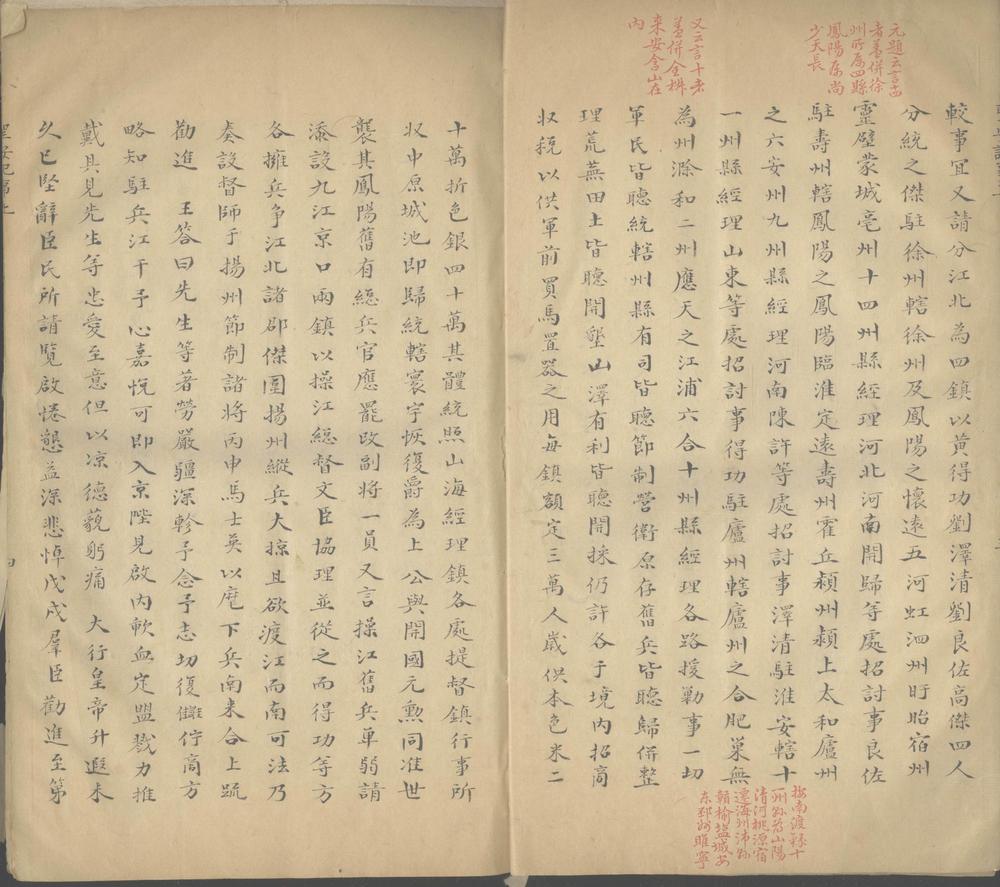 較事宜又請分江北為四鎮以黃得功劉澤清劉良佐高傑四人
分統之傑駐徐州轄徐州及鳳陽之懷遠五河虹泗州盱眙宿州
靈璧蒙城亳州十四州縣經理河北河南開歸等處招討事良佐
駐壽州轄鳳陽之鳳陽臨淮定遠壽州霍丘潁州潁上太和廬州
之六安州九州縣經理河南陳許等處招討事澤清駐淮安轄十
一州縣經理山東等處招討事得功駐廬州轄廬州之合肥巢無
為州滁和二州應天之江浦六合十州縣經理各路援勦事一切
軍民皆聽統轄州縣有司皆聽節制營衛原存舊兵皆聽歸併整
理荒蕪田土皆聽開墾山澤有利皆聽開採仍許各于境內招商
収稅以供軍前買馬置器之用每鎮額定三萬人歲供本色米二
十萬折色銀四十萬其體統照山海經理鎮各處提督鎮行事所
収中原城池即歸統轄寰宇恢復爵為上公與開國元勳同准世
襲其鳳陽舊有總兵官應罷改副將一員又言操江舊兵單弱請
添設九江京口兩鎮以操江總督文臣協理並從之而得功等方
各擁兵爭江北諸郡傑圍揚州縱兵大掠且欲渡江而南可法乃
奏設督師于揚州節制諸將丙申馬士英以麾下兵南来合上䟽
勸進 王答曰先生等著勞嚴疆深軫予念予志切復讎佇商方
略知駐兵江干予心嘉悅可即入京陛見啟內軟血定盟戮力推
戴具見先生等忠愛至意但以凉德藐躬痛 大行皇帝升遐未
久已堅辭臣民所請覧啟惓懇益深悲悼戊戌羣臣勸進至第
元題云言十四
者葢併徐
州所屬四縣
鳳陽屬尚
少天長
又云言十者
葢併全椒
来安含山在
內
按南渡録十
一州縣為山陽
清河桃源宿
遷海州沛縣
贛榆鹽城安
東邳州睢寧
四